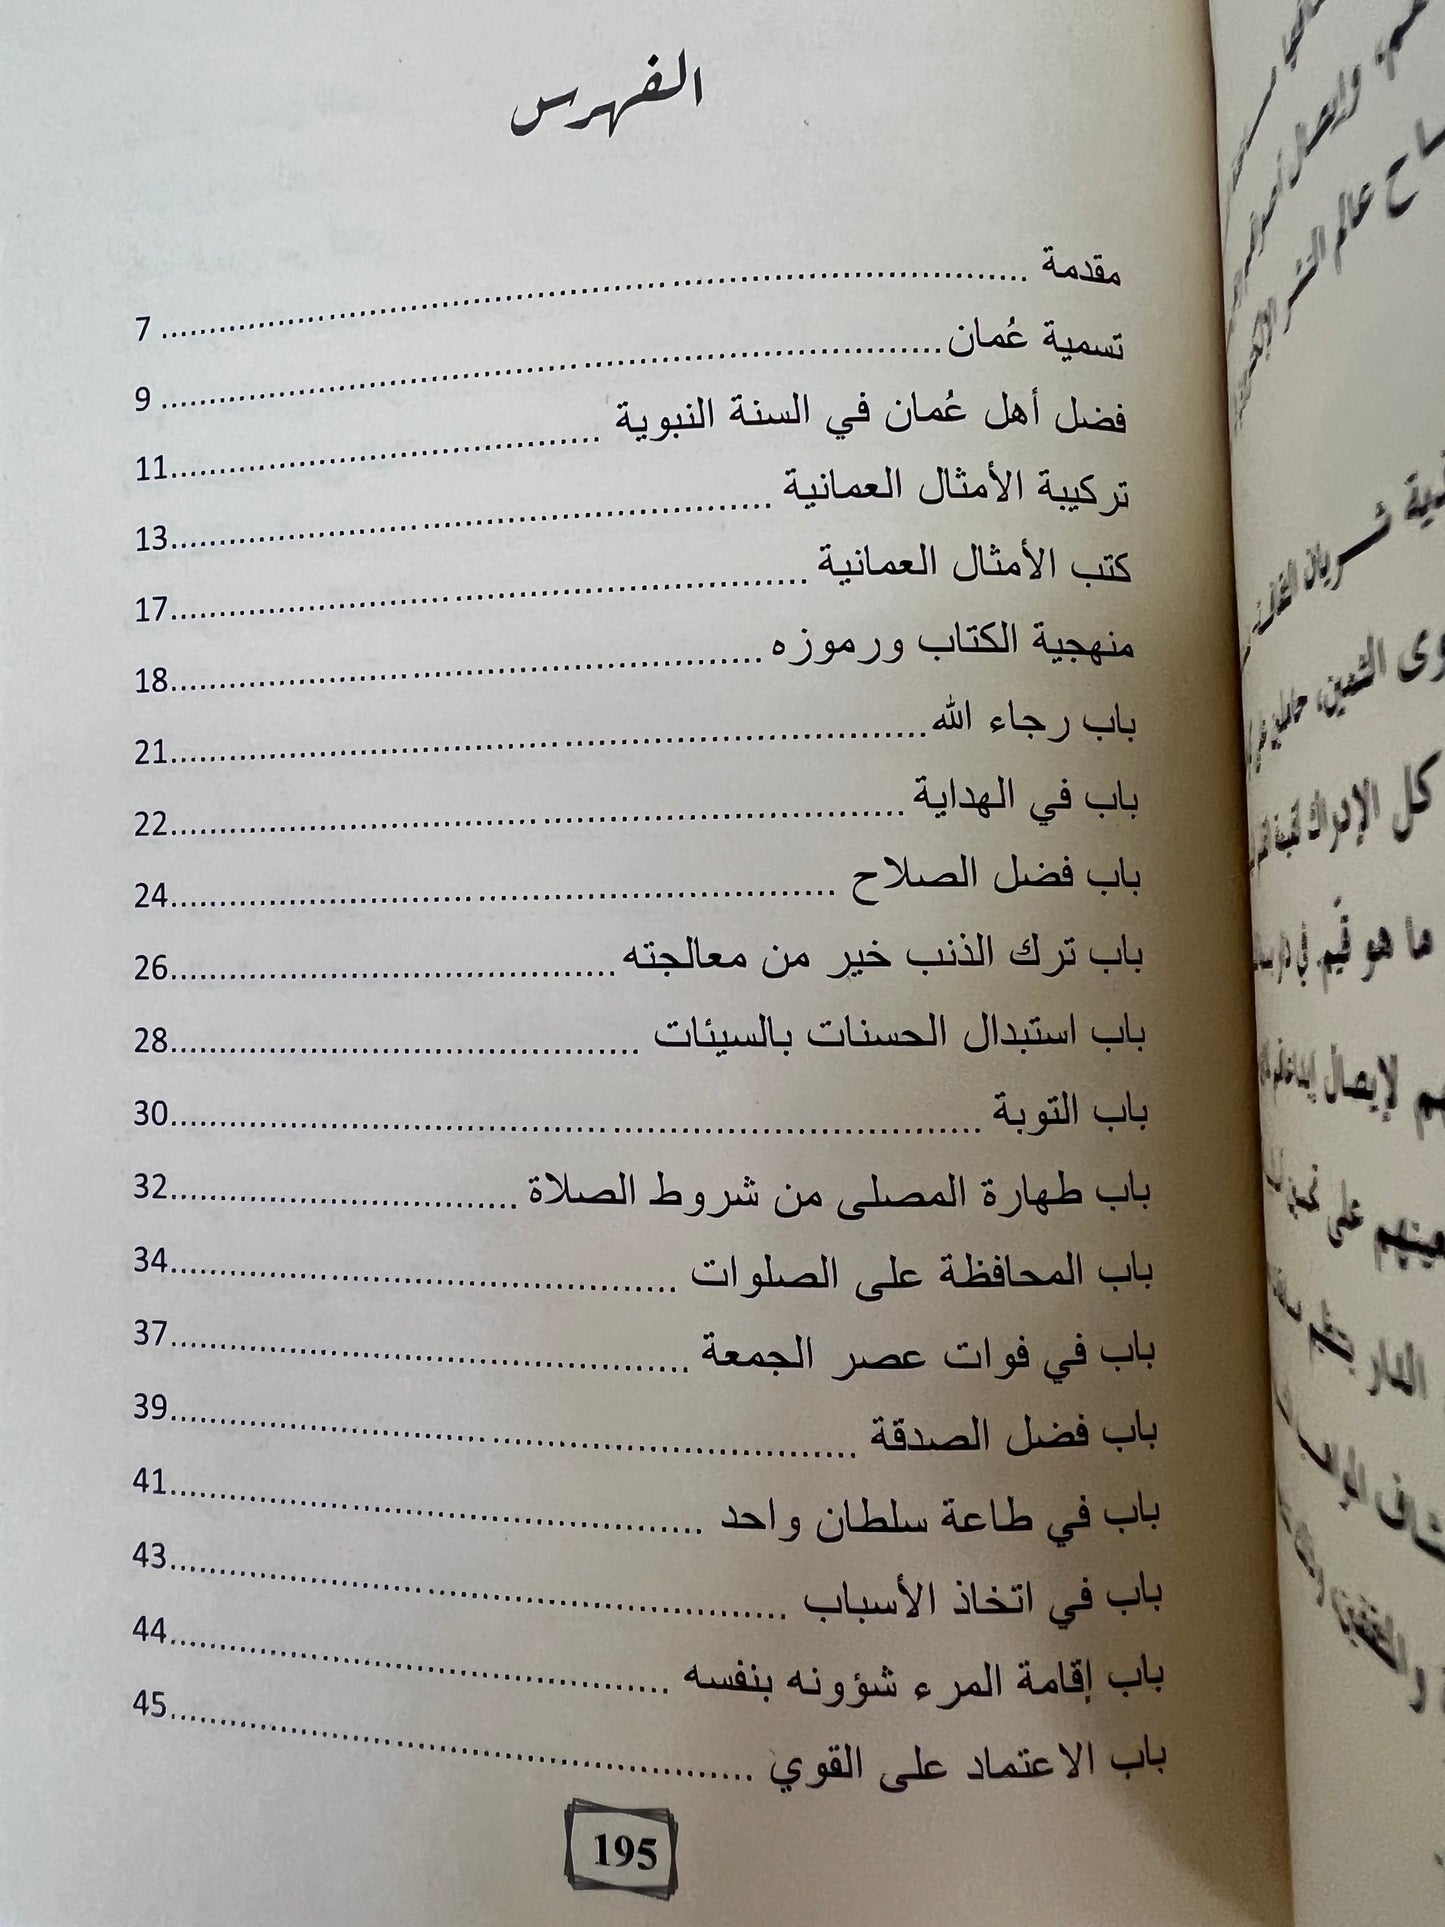 الفهرس
مقدمة ........ 7
تسمية عُمان ........ 9
فضل أهل عُمان في السنة النبوية ........ 11
تركيبة الأمثال العمانية ........ 13
كتب الأمثال العمانية ........ 17
منهجية الكتاب ورموزه ........ 18
باب رجاء الله ........ 21
باب في الهداية ........ 22
باب فضل الصلاح ........ 24
باب ترك الذنب خير من معالجته ........ 26
باب استبدال الحسنات بالسيئات ........ 28
باب التوبة ........ 30
باب طهارة المصلى من شروط الصلاة ........ 32
باب المحافظة على الصلوات ........ 34
باب في فوات عصر الجمعة ........ 37
باب فضل الصدقة ........ 39
باب في طاعة سلطان واحد ........ 41
باب في اتخاذ الأسباب ........ 43
باب إقامة المرء شؤونه بنفسه ........ 44
باب الاعتماد على القوي ........ 45
195
عالم النشر
كل الإدراك
ما هو قيّم. في
لإيصال